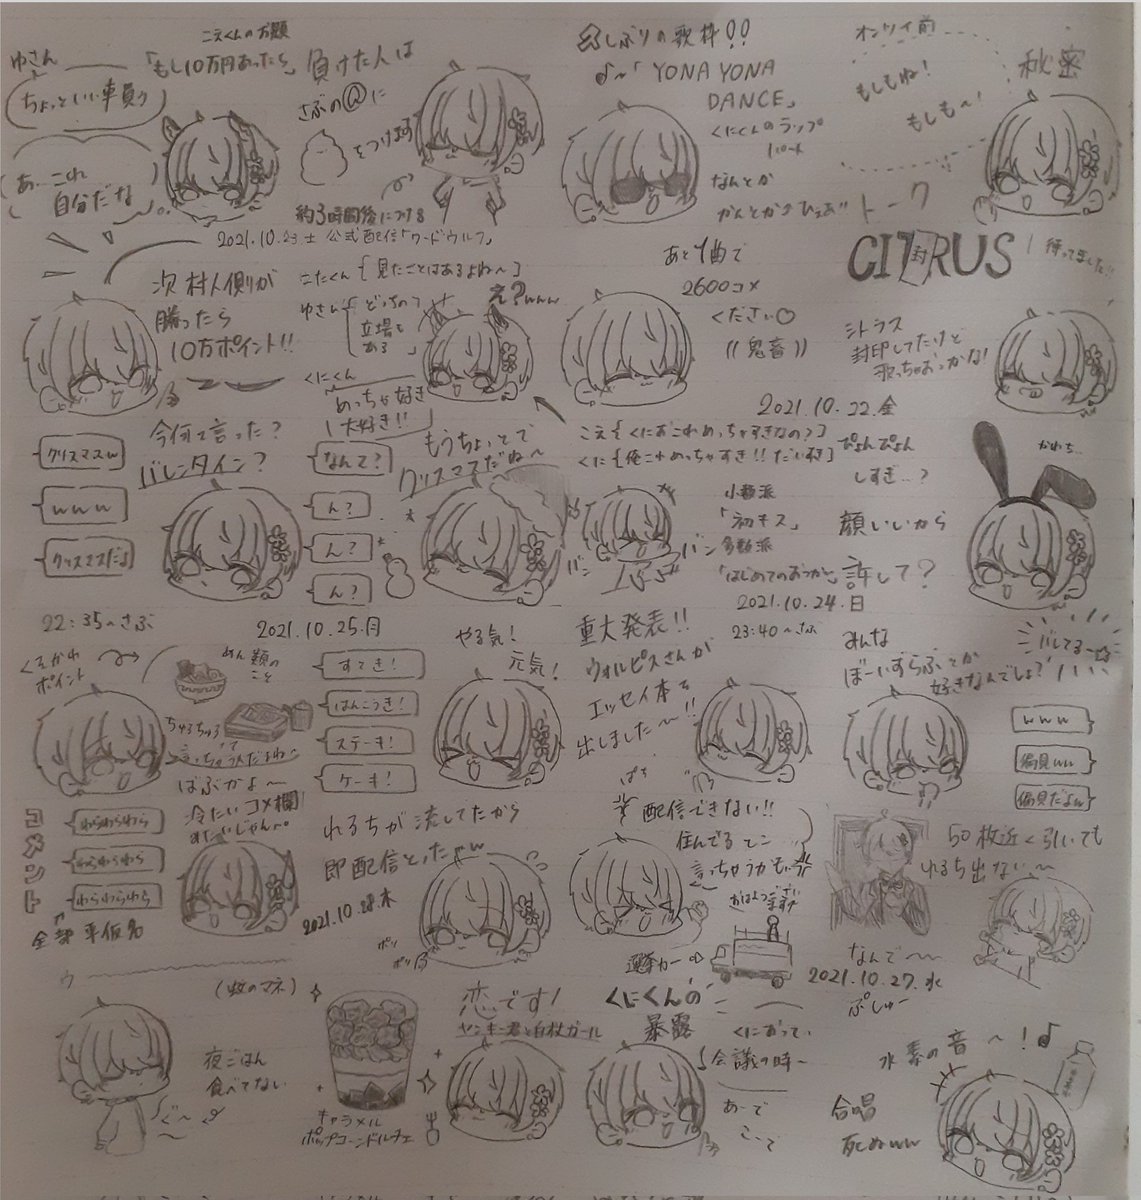 こえくんのお題
「もし10万円あったら」
ゆさん
ちょっといい車買う
あ…これ
自分だな
負けた人は
さぶの@に
をつけます
約3時間後につける
2021.10.23土 公式配信「ワードウルフ」
しぶりの歌枠!!
♪〜「YONA YONA
DANCE」
くにくんのラップ
パート
なんとか
オンライ前
もしもね!
もしも〜!
秘密
トーク
次 村人側が
勝ったら
10万ポイント!!
こたくん{見たことはあるよね〜}
ゆさん
どっちの
立場も
ある
え?www
くにくん
めっちゃ好き
大好き!!
あと1曲で
2600コメ
ください♡
((鬼畜))
CITRUS
封
待ってました!!
シトラス
封印してたけど
歌っちゃおっかな!
2021.10.22.金
今何て言った?
バレンタイン?
クリスマスw
www
クリスマスだよ
なんて?
ん?
ん?
ん?
もうちょっとで
クリスマスだね〜
こえ{くにおこれめっちゃすきなの?}
くに{俺これめっちゃすき!!だいすき}
小数派
「初キス」
多数派
「はじめてのおつかい」
バン
バン
2021.10.24.日
23:40〜さぶ
ぴょんぴょん
しすぎ..?
顔いいから
許して?
かわち
22:35〜さぶ
2021.10.25.月
くそかわ
ポイント
めん類の
こと
ちゅるちゅる
って
言っちゃう人だよね〜
ばぶかよ〜
すてき!
はんこうき!
ステーキ!
ケーキ!
やる気!
元気!
重大発表!!
ウォルピスさんが
エッセイ本を
出しました〜!!
ぱち
みんな
ぼーいずらぶとか
好きなんでしょ?
バレてる〜☆
www
偏見ww
偏見だよw
コメント
わらわらわら
わらわらわら
わらわらわら
全部 平仮名
冷たいコメ欄!
みたいじゃん。
れるちが流してたから
即配信とったよw
2021.10.28.木
ポリ
ポリ
配信できない!!
住んでるとこ
言っちゃうかもぃ
おはようございます!!
選挙カー
50枚近く引いても
れるち出ない〜
なんで〜
2021.10.27.水
ぷしゅー
ウ
(蚊のマネ)
夜ごはん
食べてない
ぐ〜
キャラメル
ポップコーンドルチェ
恋です!
ヤンキー君と白杖ガール
くにくんの
暴露
くにおってい
会議の時〜
あーで
こーて
水素の音〜!♪
合唱
死ぬww